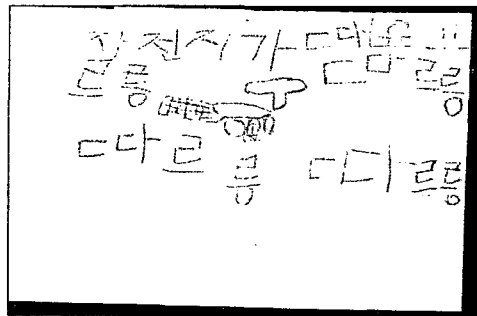 자전지가 따
르릉 따르릉
따르릉 따르릉